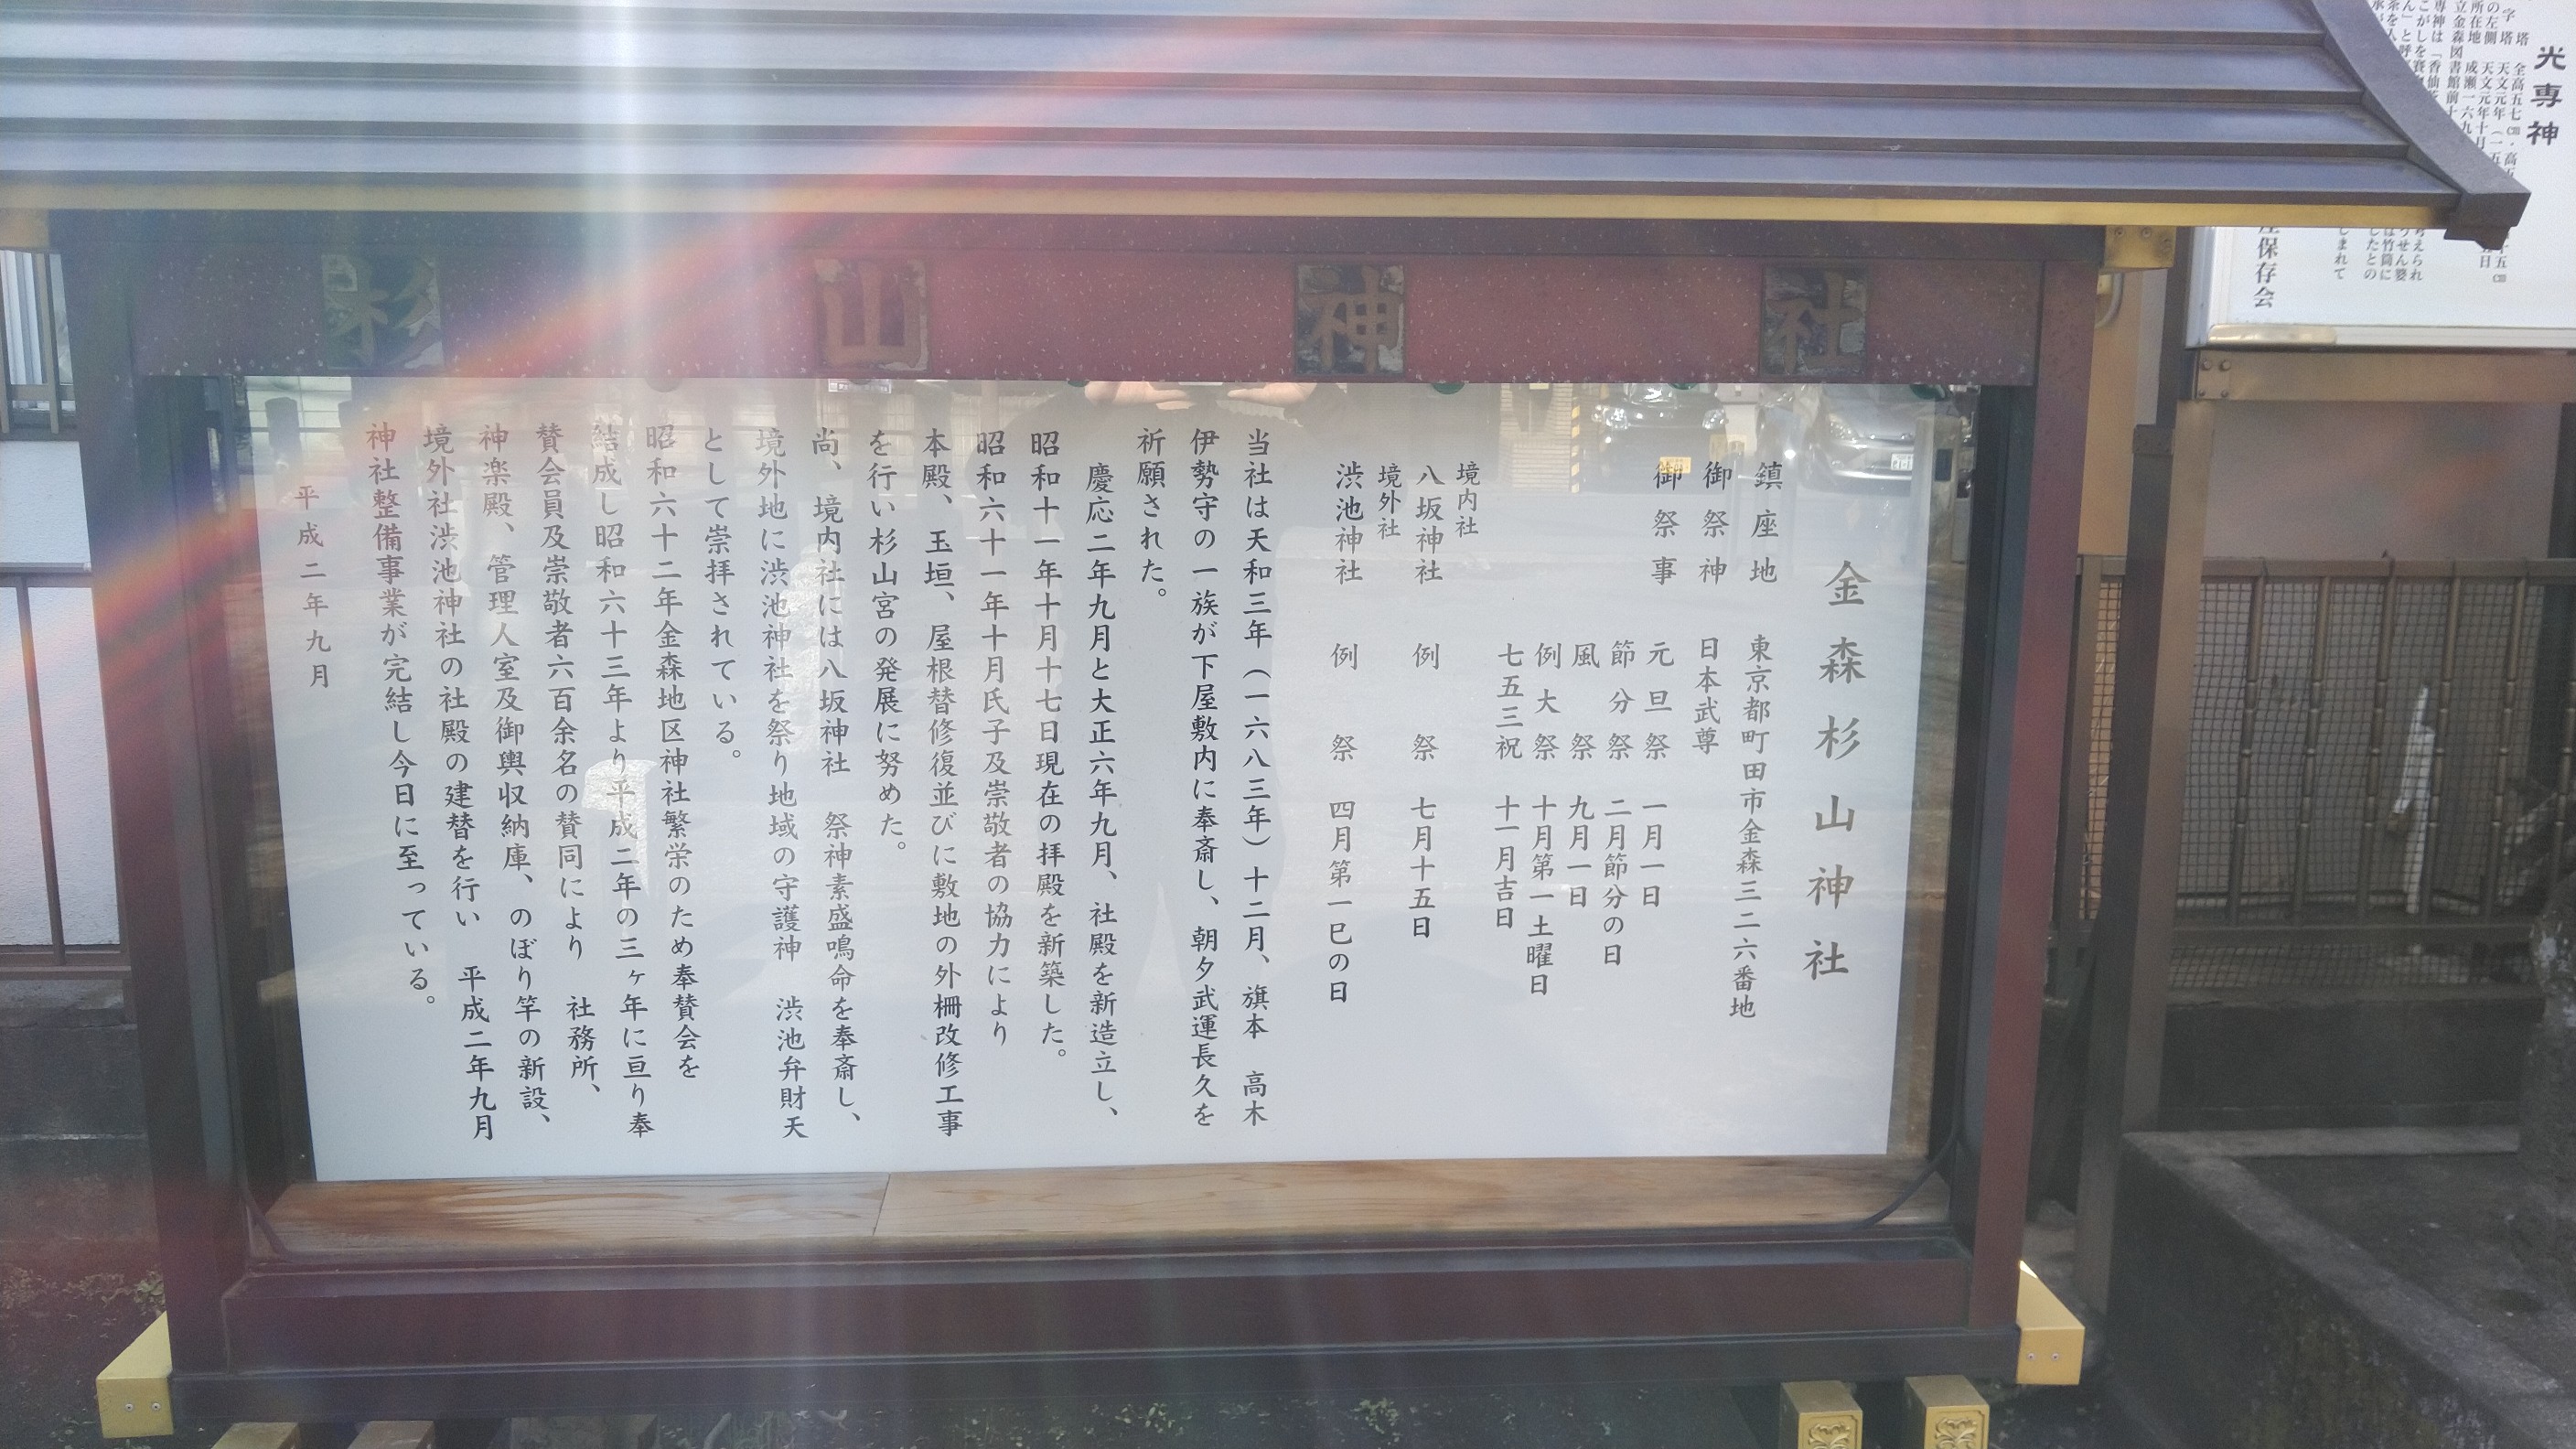 杉山神社
金森杉山神社
鎮座地 東京都町田市金森三二六番地
御祭神 日本武尊
御祭事 元旦祭 一月一日
節分祭 二月節分の日
風祭 九月一日
例大祭 十月第一土曜日
七五三祝 十一月吉日
境内社
八坂神社 例祭 七月十五日
境外社
渋池神社 例祭 四月第一巳の日
当社は天和三年（一六八三年）十二月、旗本 高木
伊勢守の一族が下屋敷内に奉斎し、朝夕武運長久を
祈願された。
慶応二年九月と大正六年九月、社殿を新造立し、
昭和十一年十月十七日現在の拝殿を新築した。
昭和六十一年十月氏子及崇敬者の協力により
本殿、玉垣、屋根替修復並びに敷地の外柵改修工事
を行い杉山宮の発展に努めた。
尚、境内社には八坂神社 祭神素盛鳴命を奉斎し、
境外地に渋池神社を祭り地域の守護神 渋池弁財天
として崇拝されている。
昭和六十二年金森地区神社繁栄のため奉賛会を
結成し昭和六十三年より平成二年の三ヶ年に亘り奉
賛会員及崇敬者六百余名の賛同により 社務所、
神楽殿、管理人室及御輿収納庫、のぼり竿の新設、
境外社渋池神社の社殿の建替を行い 平成二年九月
神社整備事業が完結し今日に至っている。
平成二年九月
光専神
塔 全高五七㎝・高
字塔 天文元年（一五
の左側 天文元年十月
所在地 成瀬一六九
立金森図書館前十
専神は「香仙
こがしを
保存会